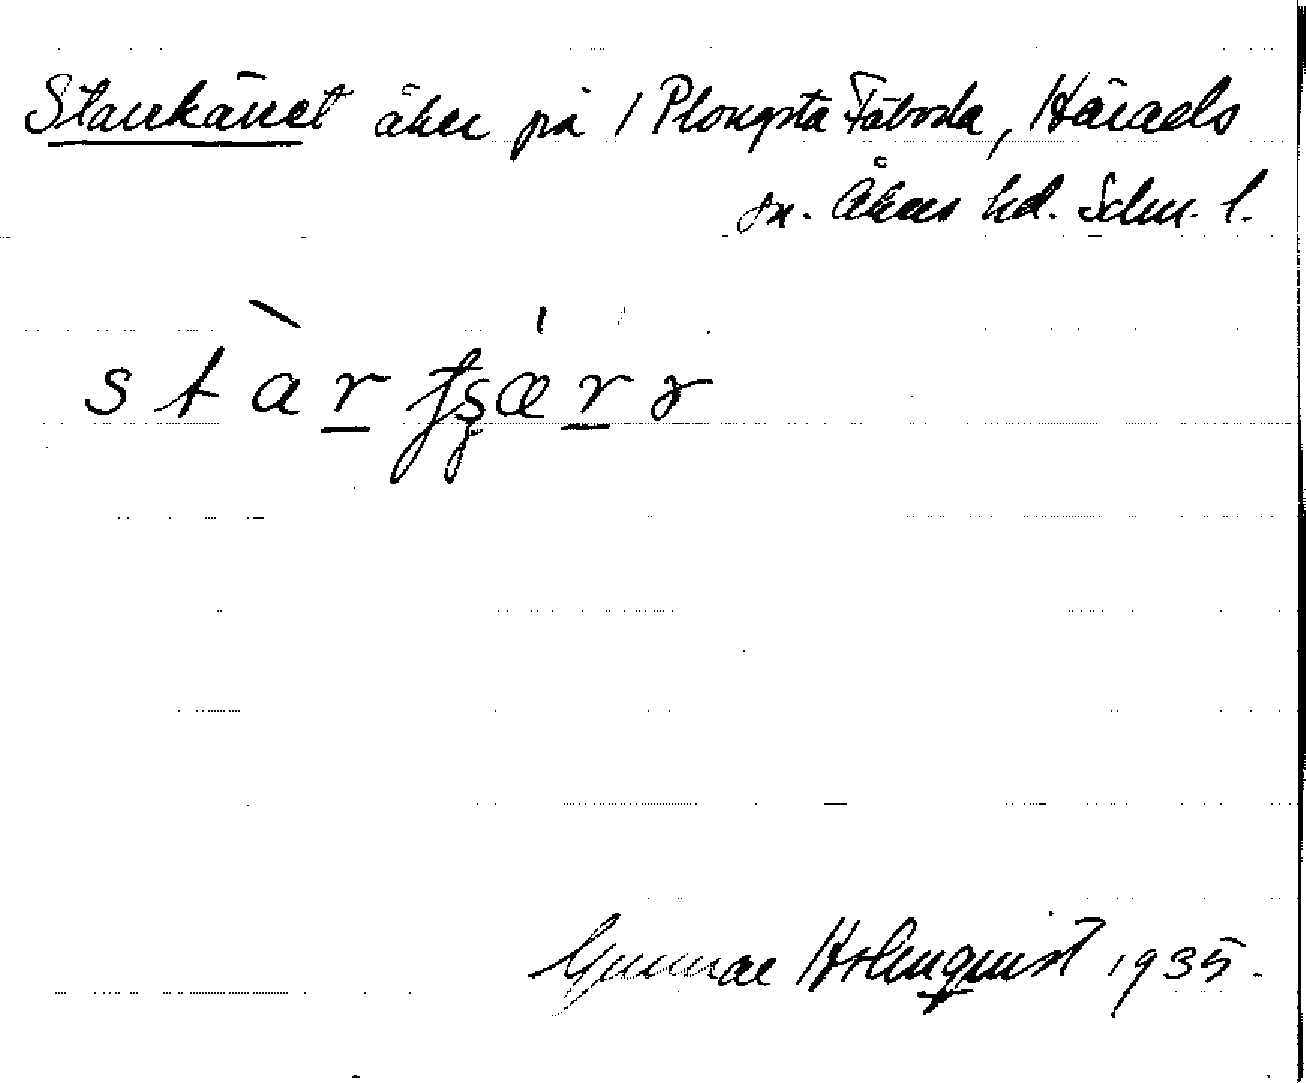 Starrkärret åker på 1 Plongsta Fäboda, Härads
sn. Åkers hd. Sdm. l.
Gunnar Holmquist 1935.